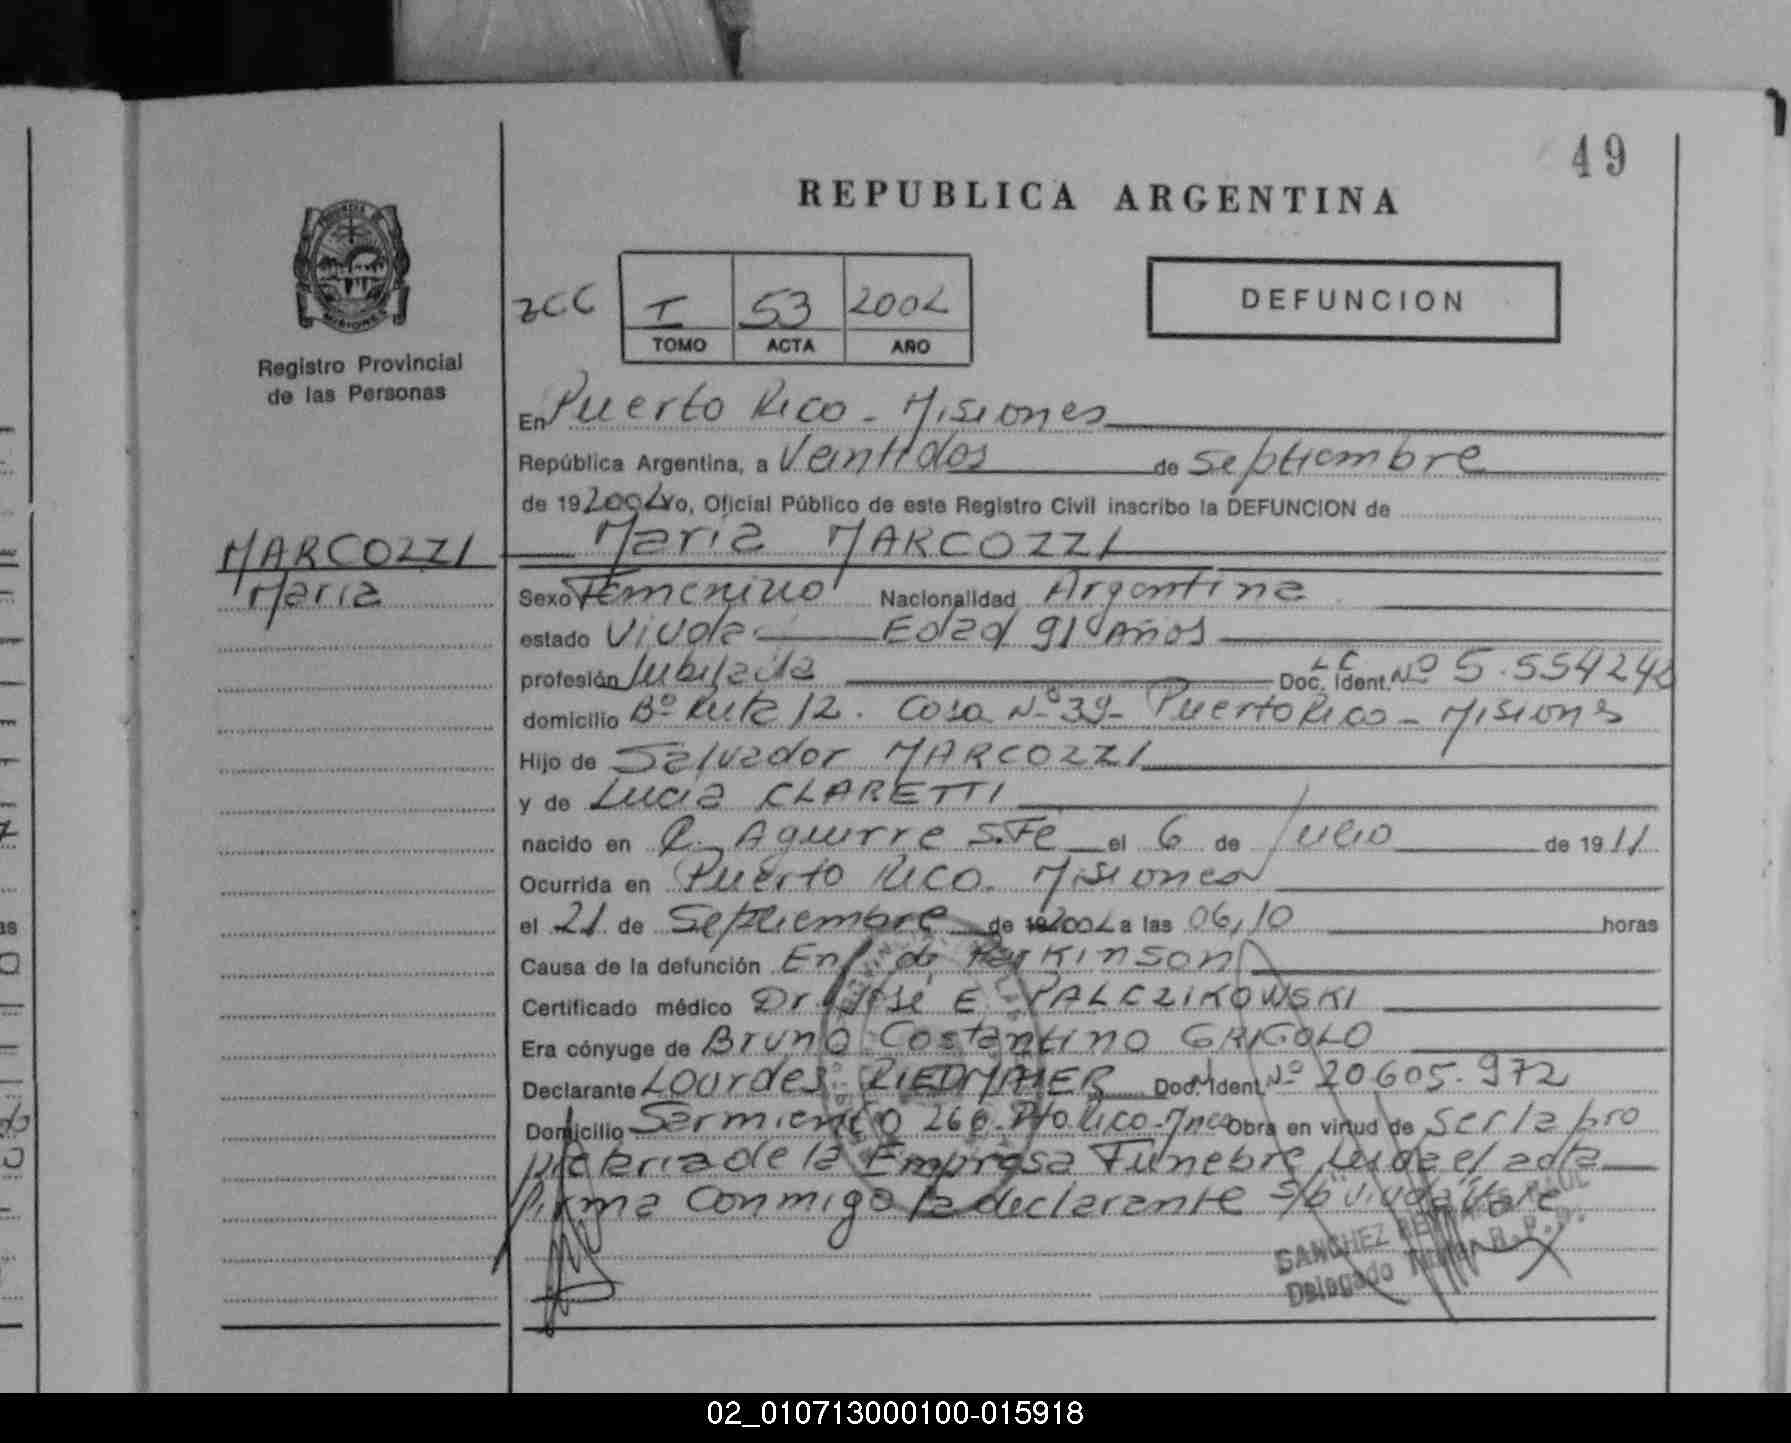 49
REPUBLICA ARGENTINA
I 53 2002
TOMO ACTA AÑO
DEFUNCION
Registro Provincial
de las Personas
En Puerto Rico - Misiones
República Argentina, a Veintidos de Septiembre
de 19 2002 yo, Oficial Público de este Registro Civil inscribo la DEFUNCION de
MARCOZZI
Maria
Maria MARCOZZI
Sexo Femenino Nacionalidad Argentina
estado Viuda Edad 91 Años
profesión Jubilada Doc. Ident. LC Nº 5.554240
domicilio Bº Ruta 12. Casa Nº 39- Puerto Rico - Misiones
Hijo de Salvador MARCOZZI
y de Lucia CLARETTI
nacido en Aguirre S.Fe el 6 de Julio de 1911
Ocurrida en Puerto Rico. Misiones
el 21 de Septiembre de 19 2002 a las 06,10 horas
Causa de la defunción Enf. de Parkinson
Certificado médico Dr. José E. PALCZIKOWSKI
Era cónyuge de Bruno Costantino GRIGOLO
Declarante Lourdes RIEDMAIER Doc. Ident. Nº 20.605.972
Domicilio Sarmiento 260. Pto Rico-Mnes Obra en virtud de Ser la pro
pietaria de la Empresa Funebre, Leida el acta
Firma Conmigo la declarante S/b "viuda" Vale
SANCHEZ RAUL
Delegado Titular R.P.P.
02_010713000100-015918